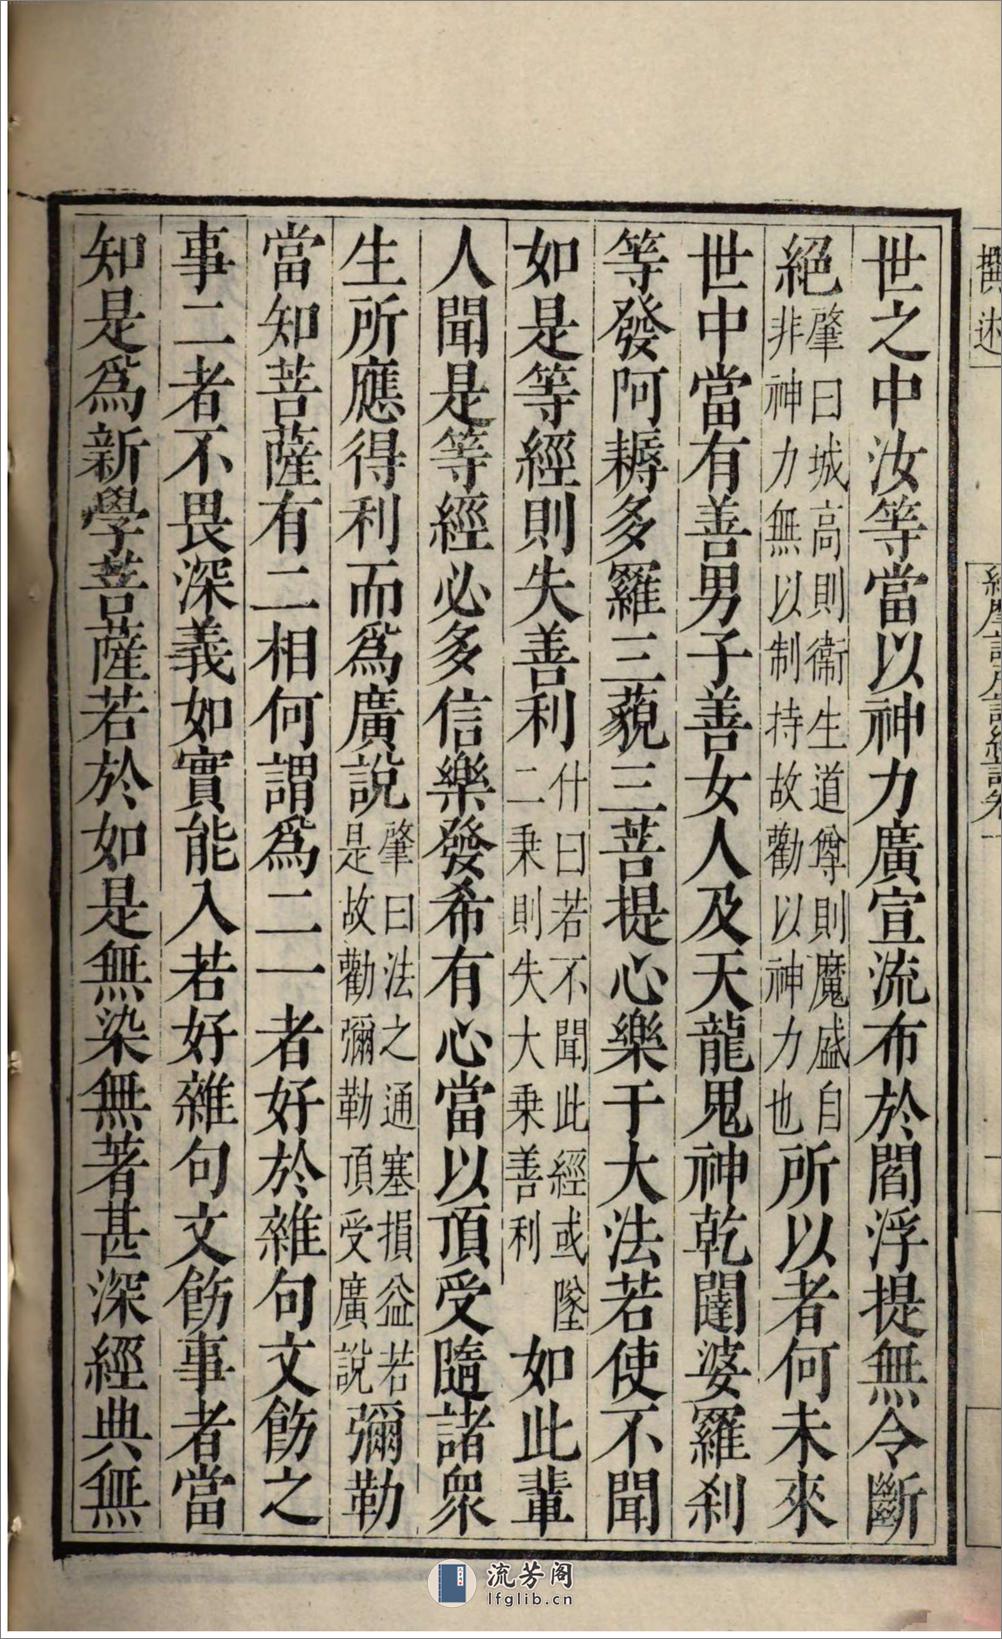 撰述
世之中汝等當以神力廣宣流布於閻浮提無令斷
絕肇曰城高則衞生道尊則魔盛自非神力無以制持故勸以神力也所以者何未來
世中當有善男子善女人及天龍鬼神乾闥婆羅刹
等發阿耨多羅三藐三菩提心樂于大法若使不聞
如是等經則失善利什曰若不聞此經或墜二乘則失大乘善利如此輩
人聞是等經必多信樂發希有心當以頂受隨諸衆
生所應得利而爲廣說肇曰法之通塞損益若是故勸彌勒頂受廣說彌勒
當知菩薩有二相何謂爲二一者好於雜句文飾之
事二者不畏深義如實能入若好雜句文飾事者當
知是爲新學菩薩若於如是無染無著甚深經典無
流芳阁
lfglib.cn